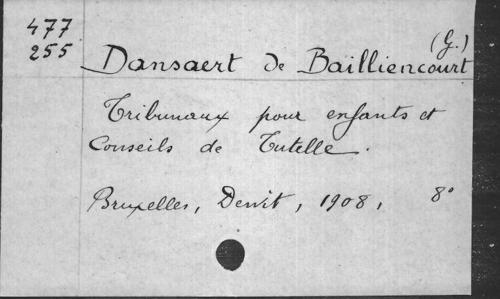 477
255
(G.)
Dansaert de Bailliencourt
Tribunaux pour enfants et
Conseils de Tutelle.
Bruxelles, Dewit, 1908, 8°